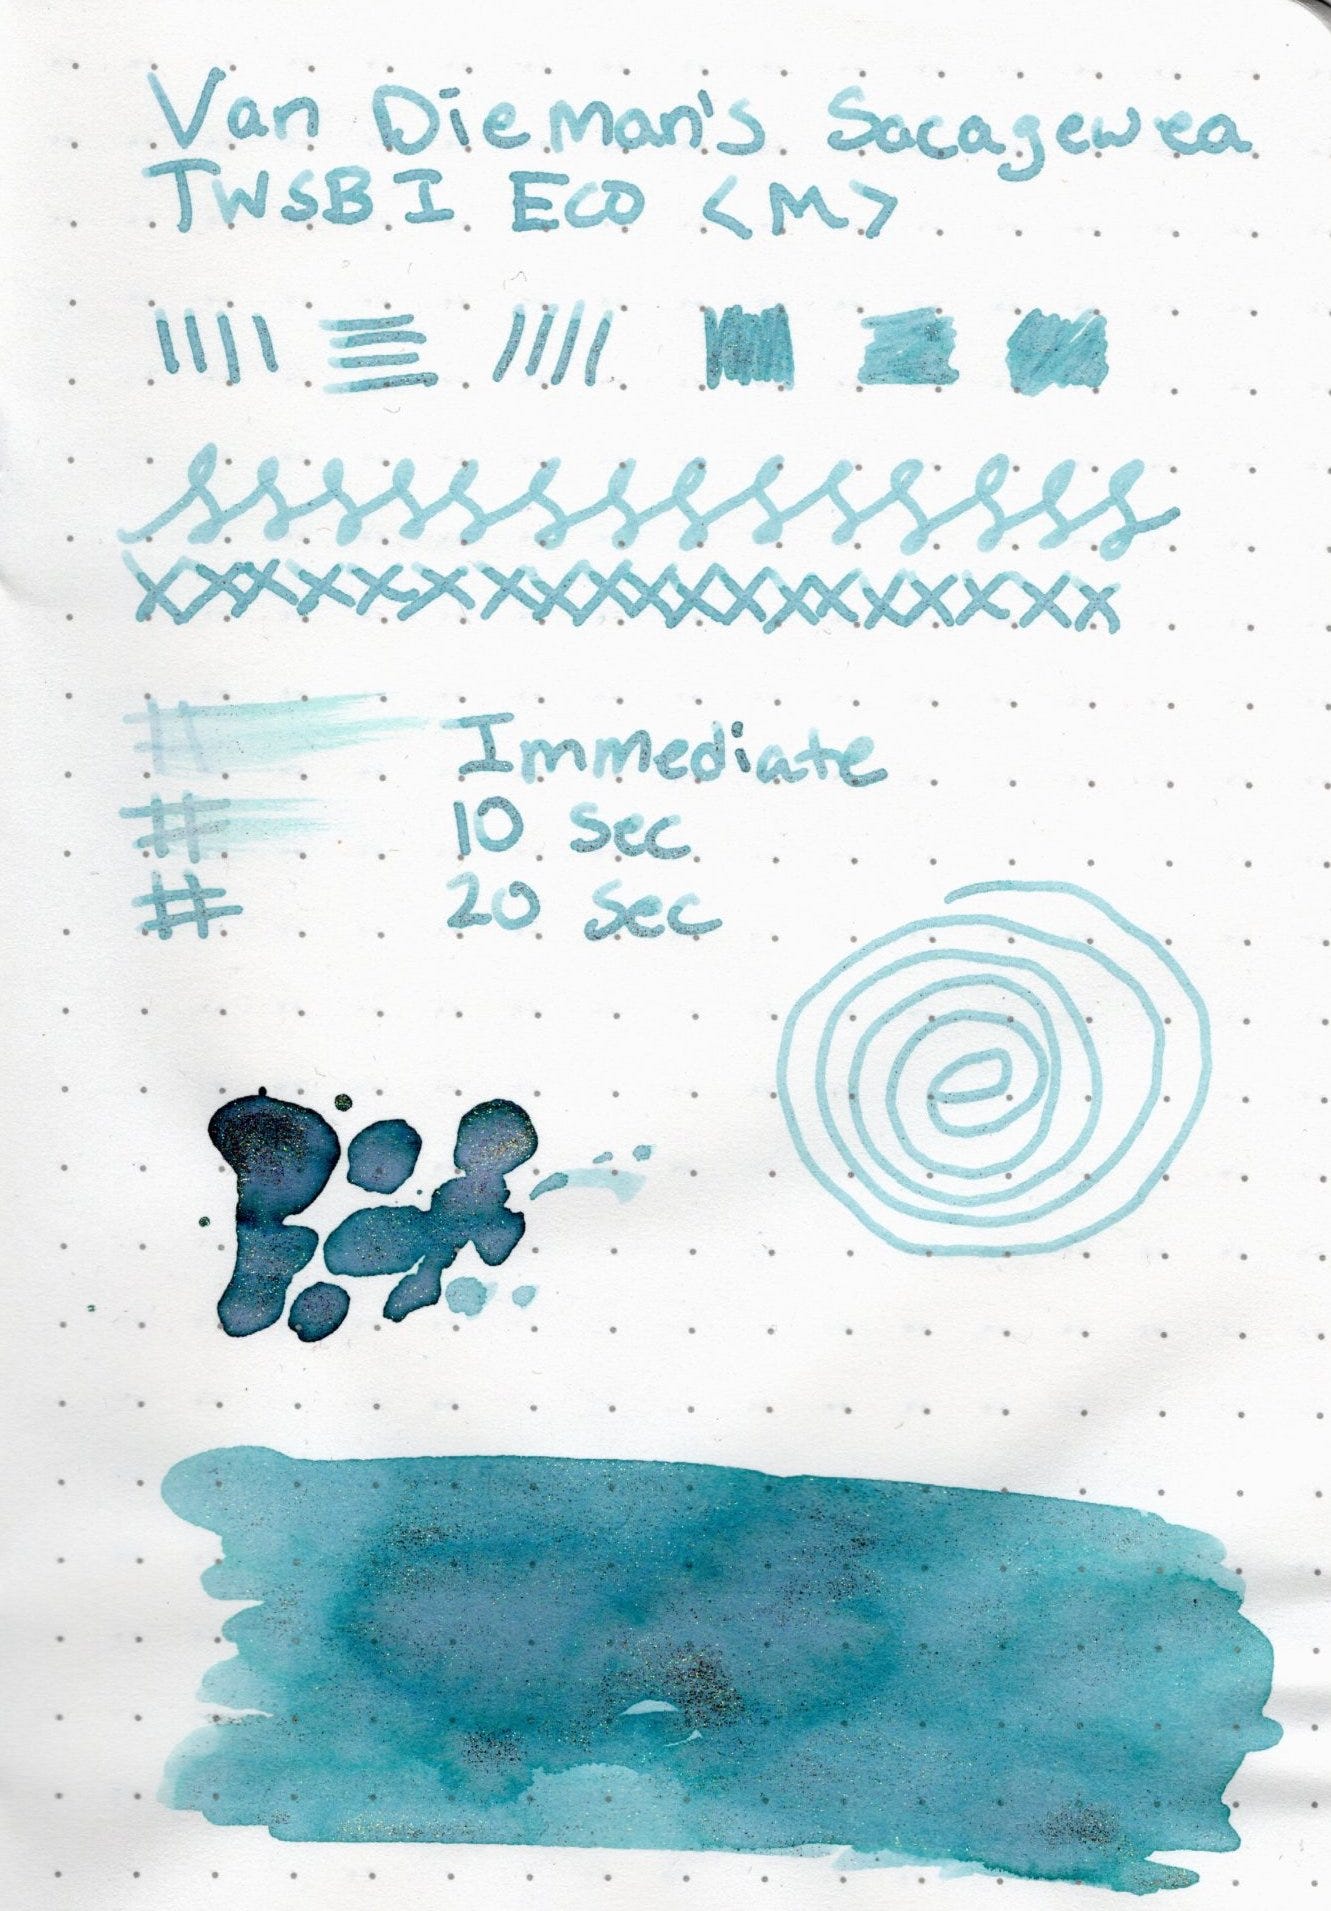 Van Dieman's Sacagewea
TWSBI ECO <M>
Immediate
10 sec
20 sec